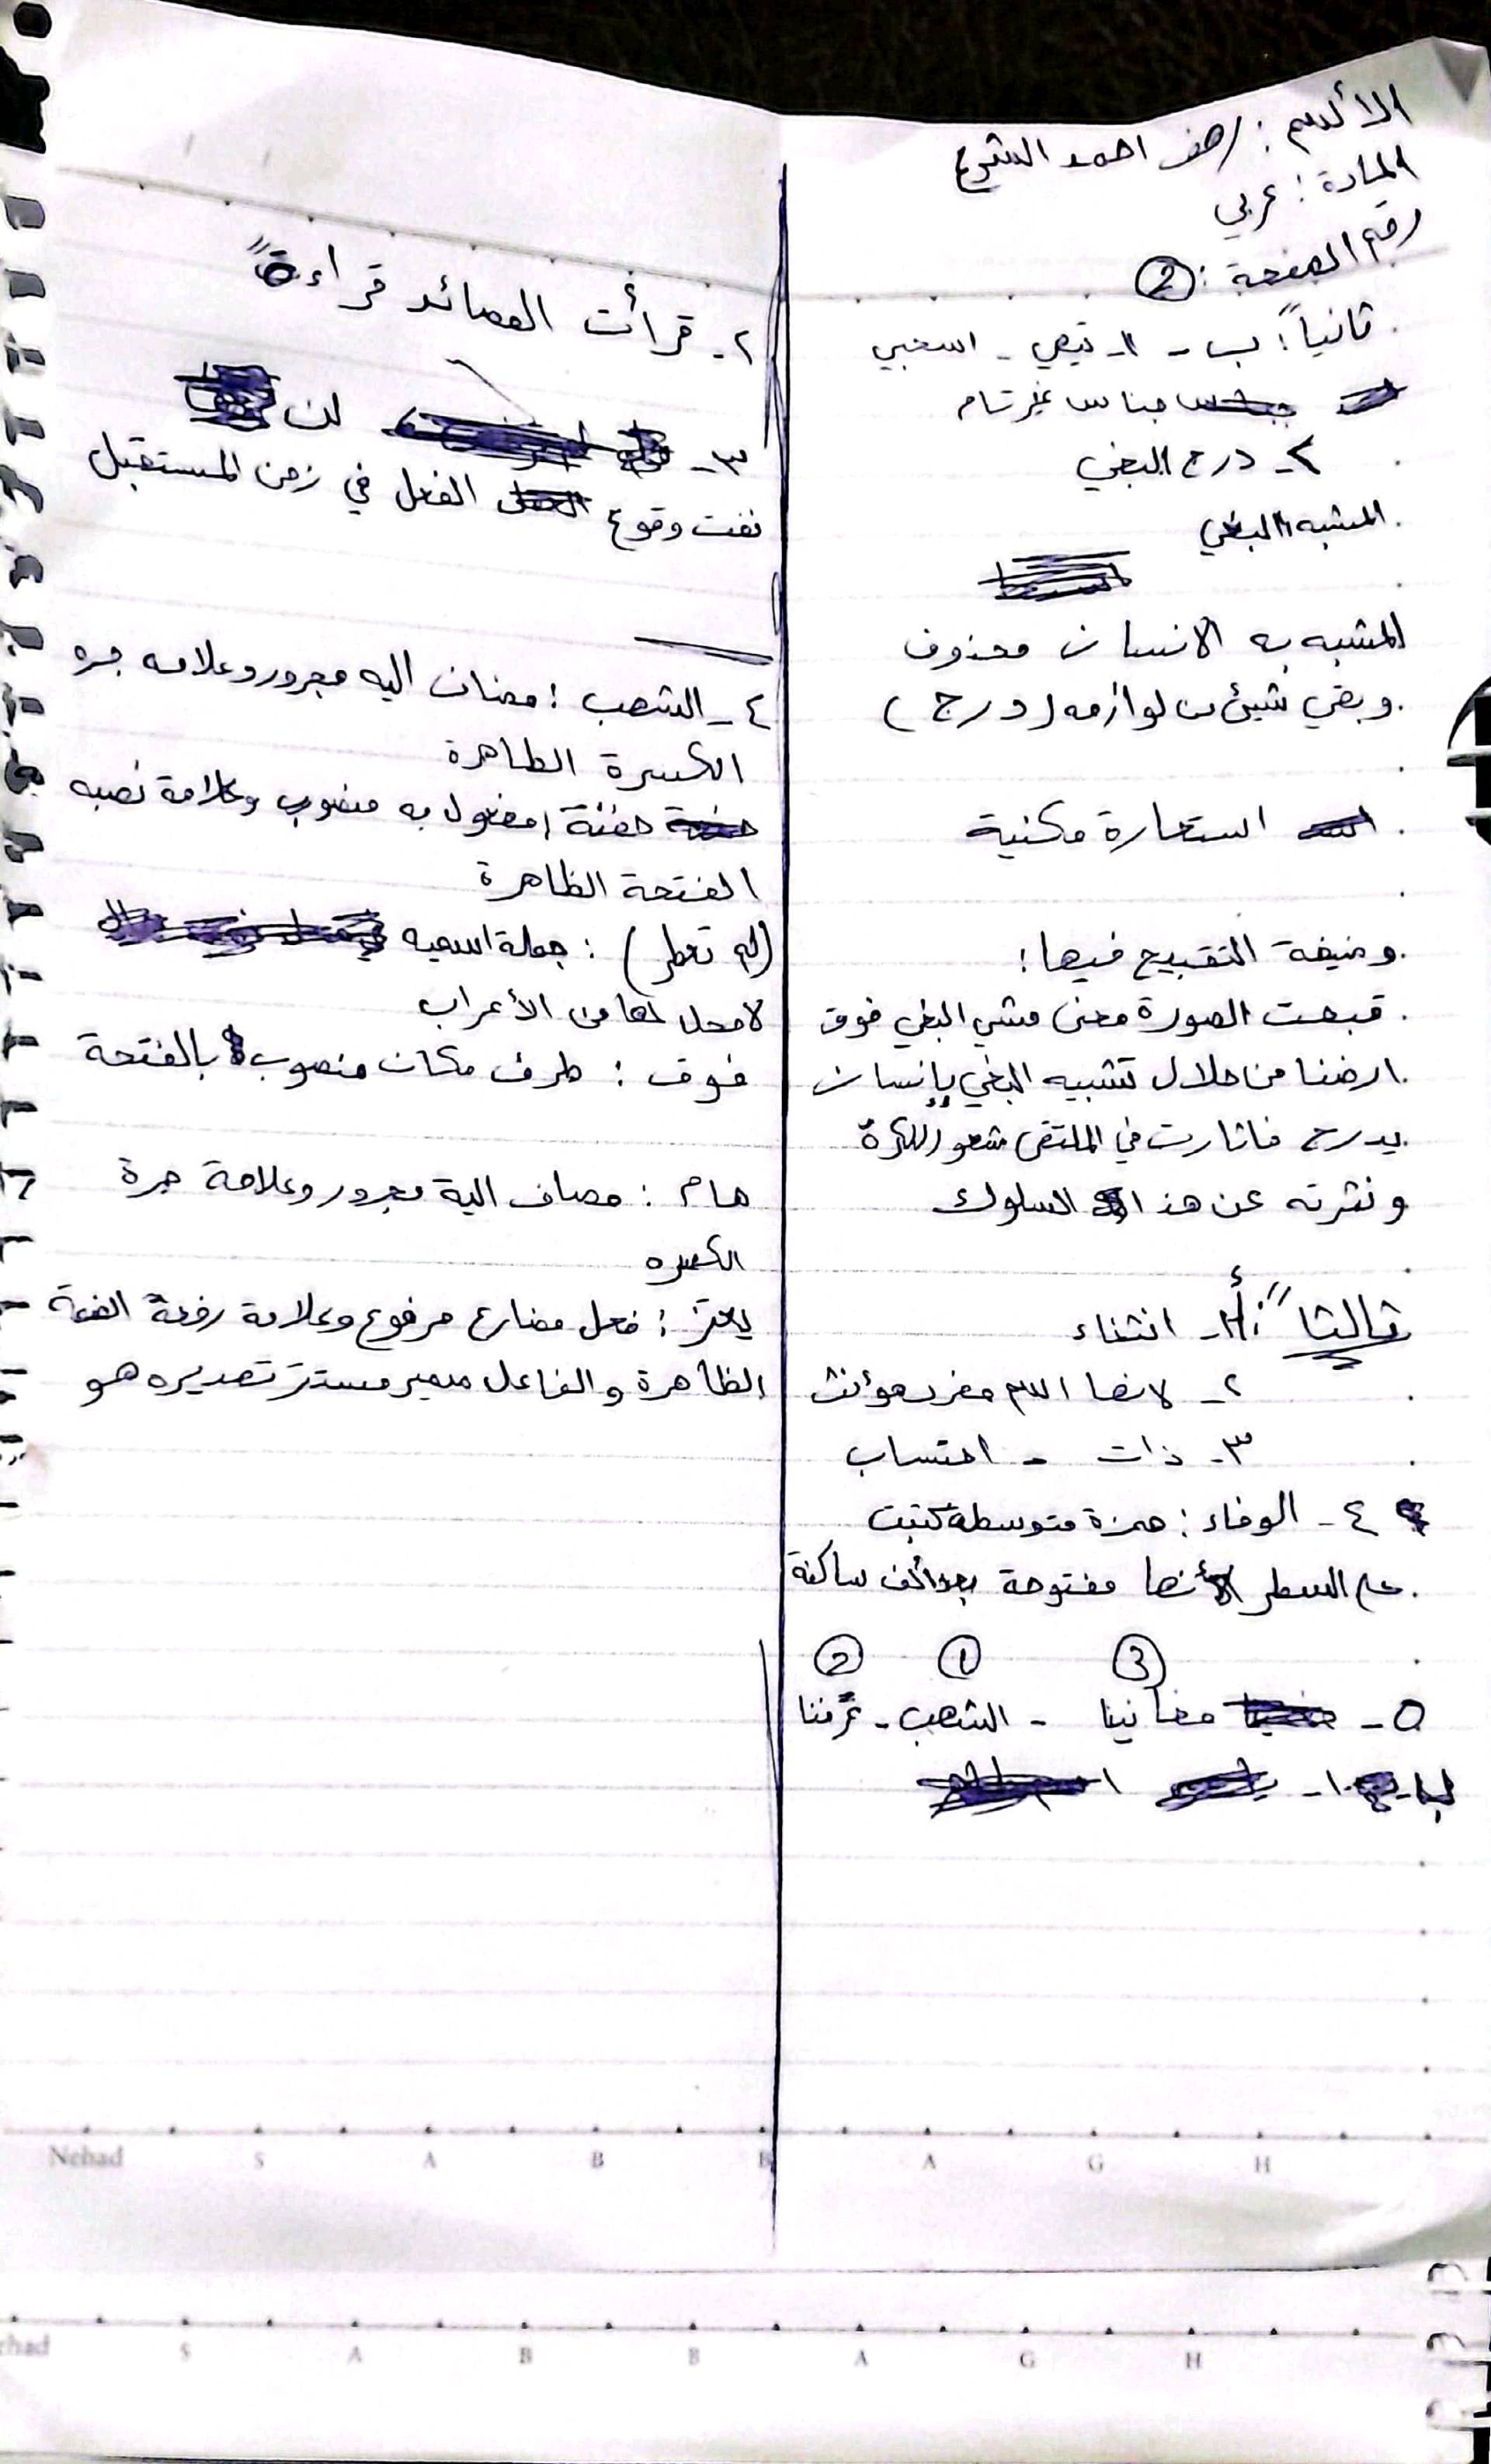 الأسم : رهف احمد الشرع
المادة : عربي
رقم الصفحة : ②
ثانياً : ب - ١- تيهي - اسحبي
جناس غير تام
٢- درج البغي
المشبه البغي
المشبه به الانسان محذوف
وبقي شيئ من لوازمه (درج)
استعارة مكنية
وضيفة التقبيح فيها :
قبحت الصورة معنى مشي البغي فوق
ارضنا من خلال تشبيه البغي بإنسان
يدرج فاثارت في الملتقى شعور الكره
ونفرته عن هذا السلوك
ثالثاً : أ ١- انشاء
٢- لانها اسم مفرد مؤنث
٣- ذات - احتساب
٤- الوفاء : همزة متوسطة كتبت
على السطر لأنها مفتوحة بعد ألف ساكنة
③ ① ②
٥- مغانينا - الشهب - عرفنا
١-
٢- قرأت القصائد قراءةً
٣- لن
نفت وقوع الفعل في زمن المستقبل
٤- الشهب : مضاف اليه مجرور وعلامه جره
الكسرة الظاهرة
حفنة : مفعول به منصوب وعلامة نصبه
الفتحة الظاهرة
تمطر) : جملة اسميه
لا محل لها من الأعراب
فوق : ظرف مكان منصوب بالفتحة
هام : مضاف الية مجرور وعلامة جرة
الكسره
يعتز : فعل مضارع مرفوع وعلامة رفعة الضمة
الظاهرة والفاعل ضمير مستتر تقديره هو
Nehad S A B B A G H
S A B B A G H